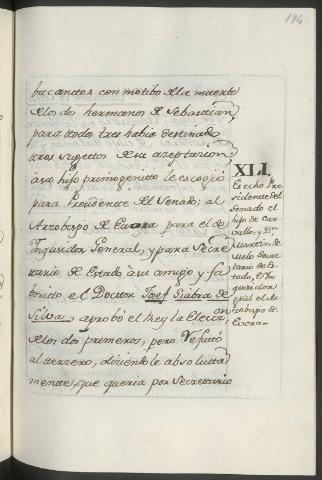 194
bacantes con motibo de la muerte
de los dos hermanos de Sebastian,
para todos tres habia destinado
tres sugettos de su azeptacion
a su hijo primogenitto le escogió
para Presidente del Senado; al
Arzobispo de Evora para el de
Inquisidor General, y para Secre
tario de Estado a su amigo y fa
borito el Doctor Josef Siabra de
Silva aprobó el Rey la Eleccion
de los dos primeros, pero Refutó
al terzero, diziendole absolutta
mente, que queria por Secrettario
XLI
Es echo Pre
sidente del
Senado el
hijo de Car
vallo, y Dn.
Martin de
Melo Secre
tario de Es
tado, e Yn
quisidor
gral. el Ar
zobispo de
Evora